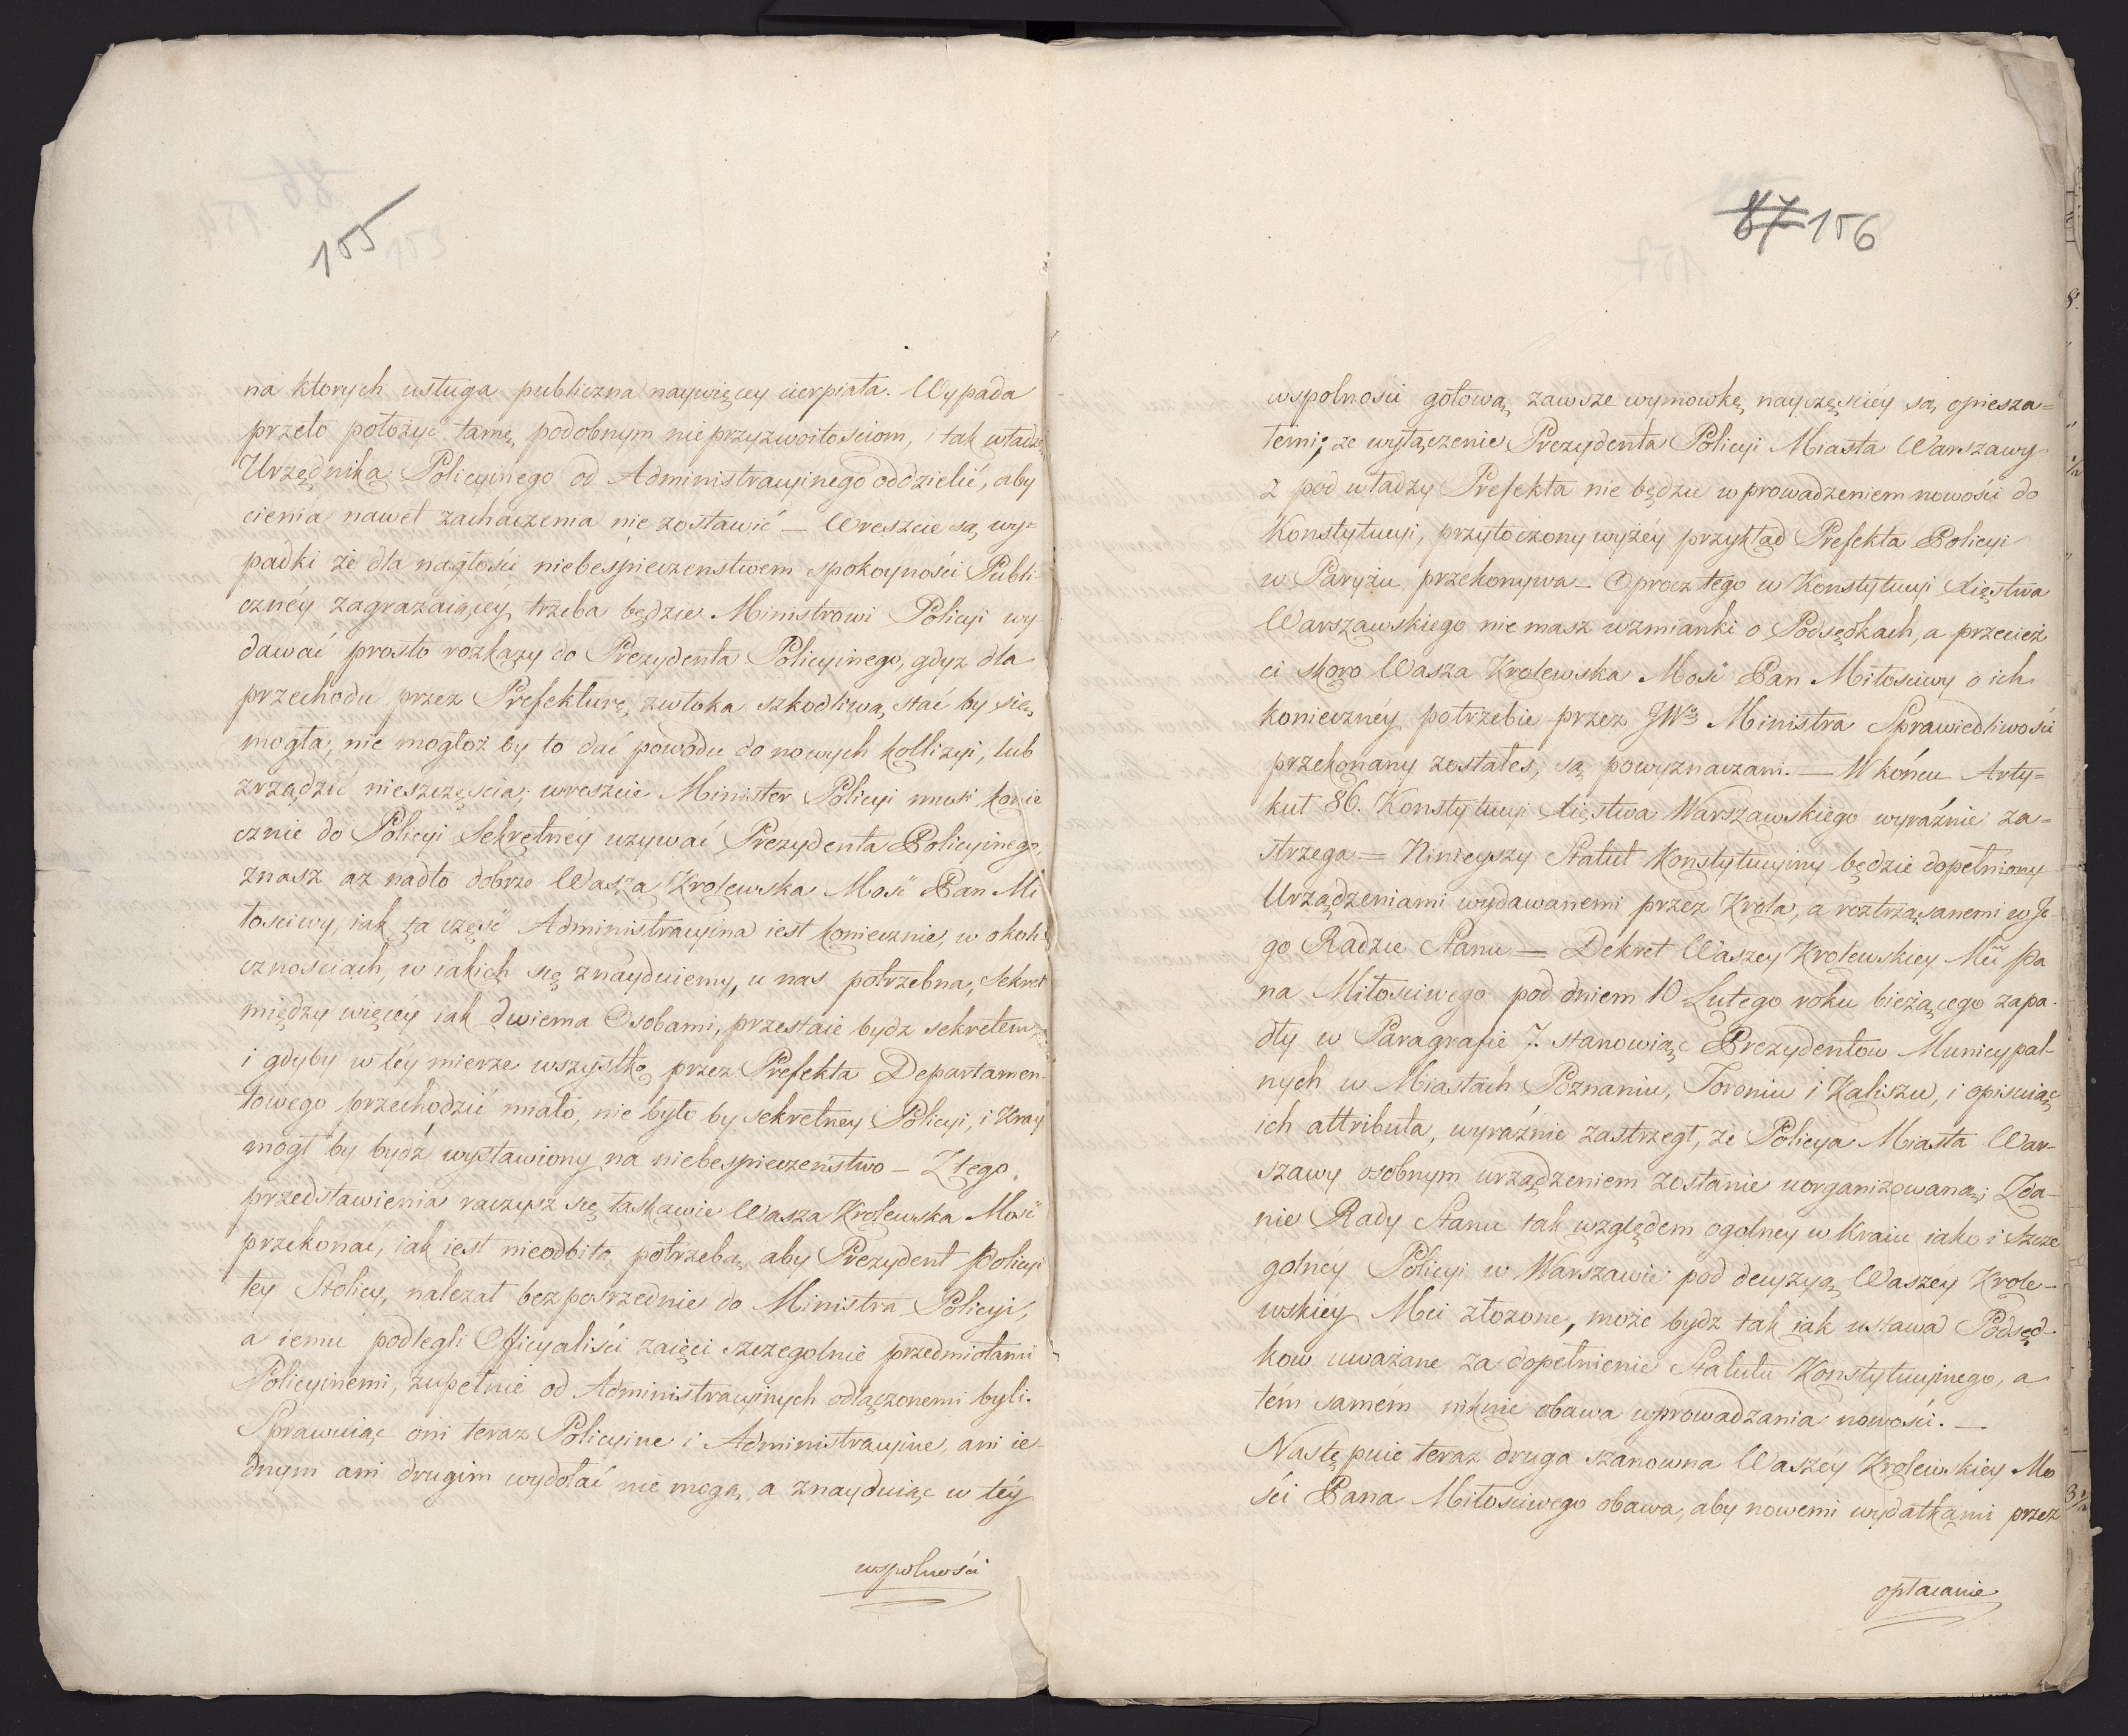 155
na ktorych usługa publiczna naywięcey cierpiała. Wypada
przeto położyć tamę podobnym nieprzyzwoitościom, i tak władzę
Urzędnika Policyinego od Administracyinego oddzielić, aby
cienia nawet zachaczenia nie zostawić — Wreszcie są wy=
padki że dla nagłości niebespieczenstwem spokoyności Publi=
czney zagrażaiącey, trzeba będzie Ministrowi Policyi wy
dawać prosto rozkazy do Prezydenta Policyinego, gdyz dla
przechodu przez Prefekturę, zwłoka szkodliwą stać by się
mogła, nie mogłoż by to dać powodu do nowych kollizyi, lub
zrządzić nieszczęścia; wreszcie Minister Policyi musi konie
cznie do Policyi Sekretney uzywać Prezydenta Policyinego,
znasz aż nadto dobrze Wasza Krolewska Mość Pan Mi
łosciwy, iak ta część Administracyina iest koniecznie, w okoli
cznosciach, w iakich się znayduiemy, u nas potrzebna, Sekret
między więcéy iak dwiema Osobami, przestaie bydz sekretem
i gdyby w téy mierze wszystko przez Prefekta Departamen=
towego przechodzić miało, nie było by sekretney Policyi, i Kray
mogł by bydź wystawiony na niebespieczeństwo — Z tego
przedstawienia raczysz się łaskawie Wasza Krolewska Mość
przekonać, iak iest nieodbitą potrzebą, aby Prezydent Policyi
tey Stolicy, nalezał bezposrzednie do Ministra Policyi,
a iemu podlegli Officyaliści zaięci szczegolnie przedmiotami
Policyinemi, zupełnie od Administracyinych odłączonemi byli.
Sprawuiąc oni teraz Policyine i Administracyine, ani ie=
dnym ani drugim wydołać nie mogą, a znayduiąc w téy
wspolności
87 156
wspolności gotową zawsze wymowkę, nayczęściéy są opiesza=
łemi; ze wyłączenie Prezydenta Policyi Miasta Warszawy
z pod władzy Prefekta nie będzie wprowadzeniem nowości do
Konstytucyi, przytoczony wyżéy przykład Prefekta Policyi
w Paryżu przekonywa — Oprocz tego w Konstytucyi Xięstwa
Warszawskiego nie masz wzmianki o Podsędkach, a przecież
ci skoro Wasza Krolewska Mość Pan Miłościwy o ich
konieczney potrzebie przez JWo Ministra Sprawiedliwości
przekonany zostałeś, są powyznaczani. — W końcu Arty=
kuł 86. Konstytucyi Xięstwa Warszawskiego wyraźnie za=
strzega = Ninieyszy Statut Konstytucyiny będzie dopełniony
Urządzeniami wydawanemi przez Krola, a roztrząsanemi w Je=
go Radzie Stanu = Dekret Waszey Krolewskiey Mci Pa
na Miłościwego pod dniem 10 Lutego roku bieżącego zapa=
dły w Paragrafie 7. stanowiąc Prezydentow Municypal=
nych w Miastach Poznaniu, Toroniu i Kaliszu, i opisuiąc
ich attributa, wyraźnie zastrzegł, że Policya Miasta War=
szawy osobnym urządzeniem zostanie uorganizowaną; Zda=
nie Rady Stanu tak względem ogolney w Kraiu iako i szcze
golnéy Policyi w Warszawie pod decyzyą Waszéy Krole=
wskiéy Mci złozone, może bydz tak iak ustawa Podsęd=
kow uważane za dopełnienie Statutu Konstytucyinego, a
tém samém niknie obawa wprowadzania nowości. —
Następuie teraz druga szanowna Waszéy Krolewskiey Mo
ści Pana Miłosciwego obawa, aby nowemi wydatkami przez
opłacanie